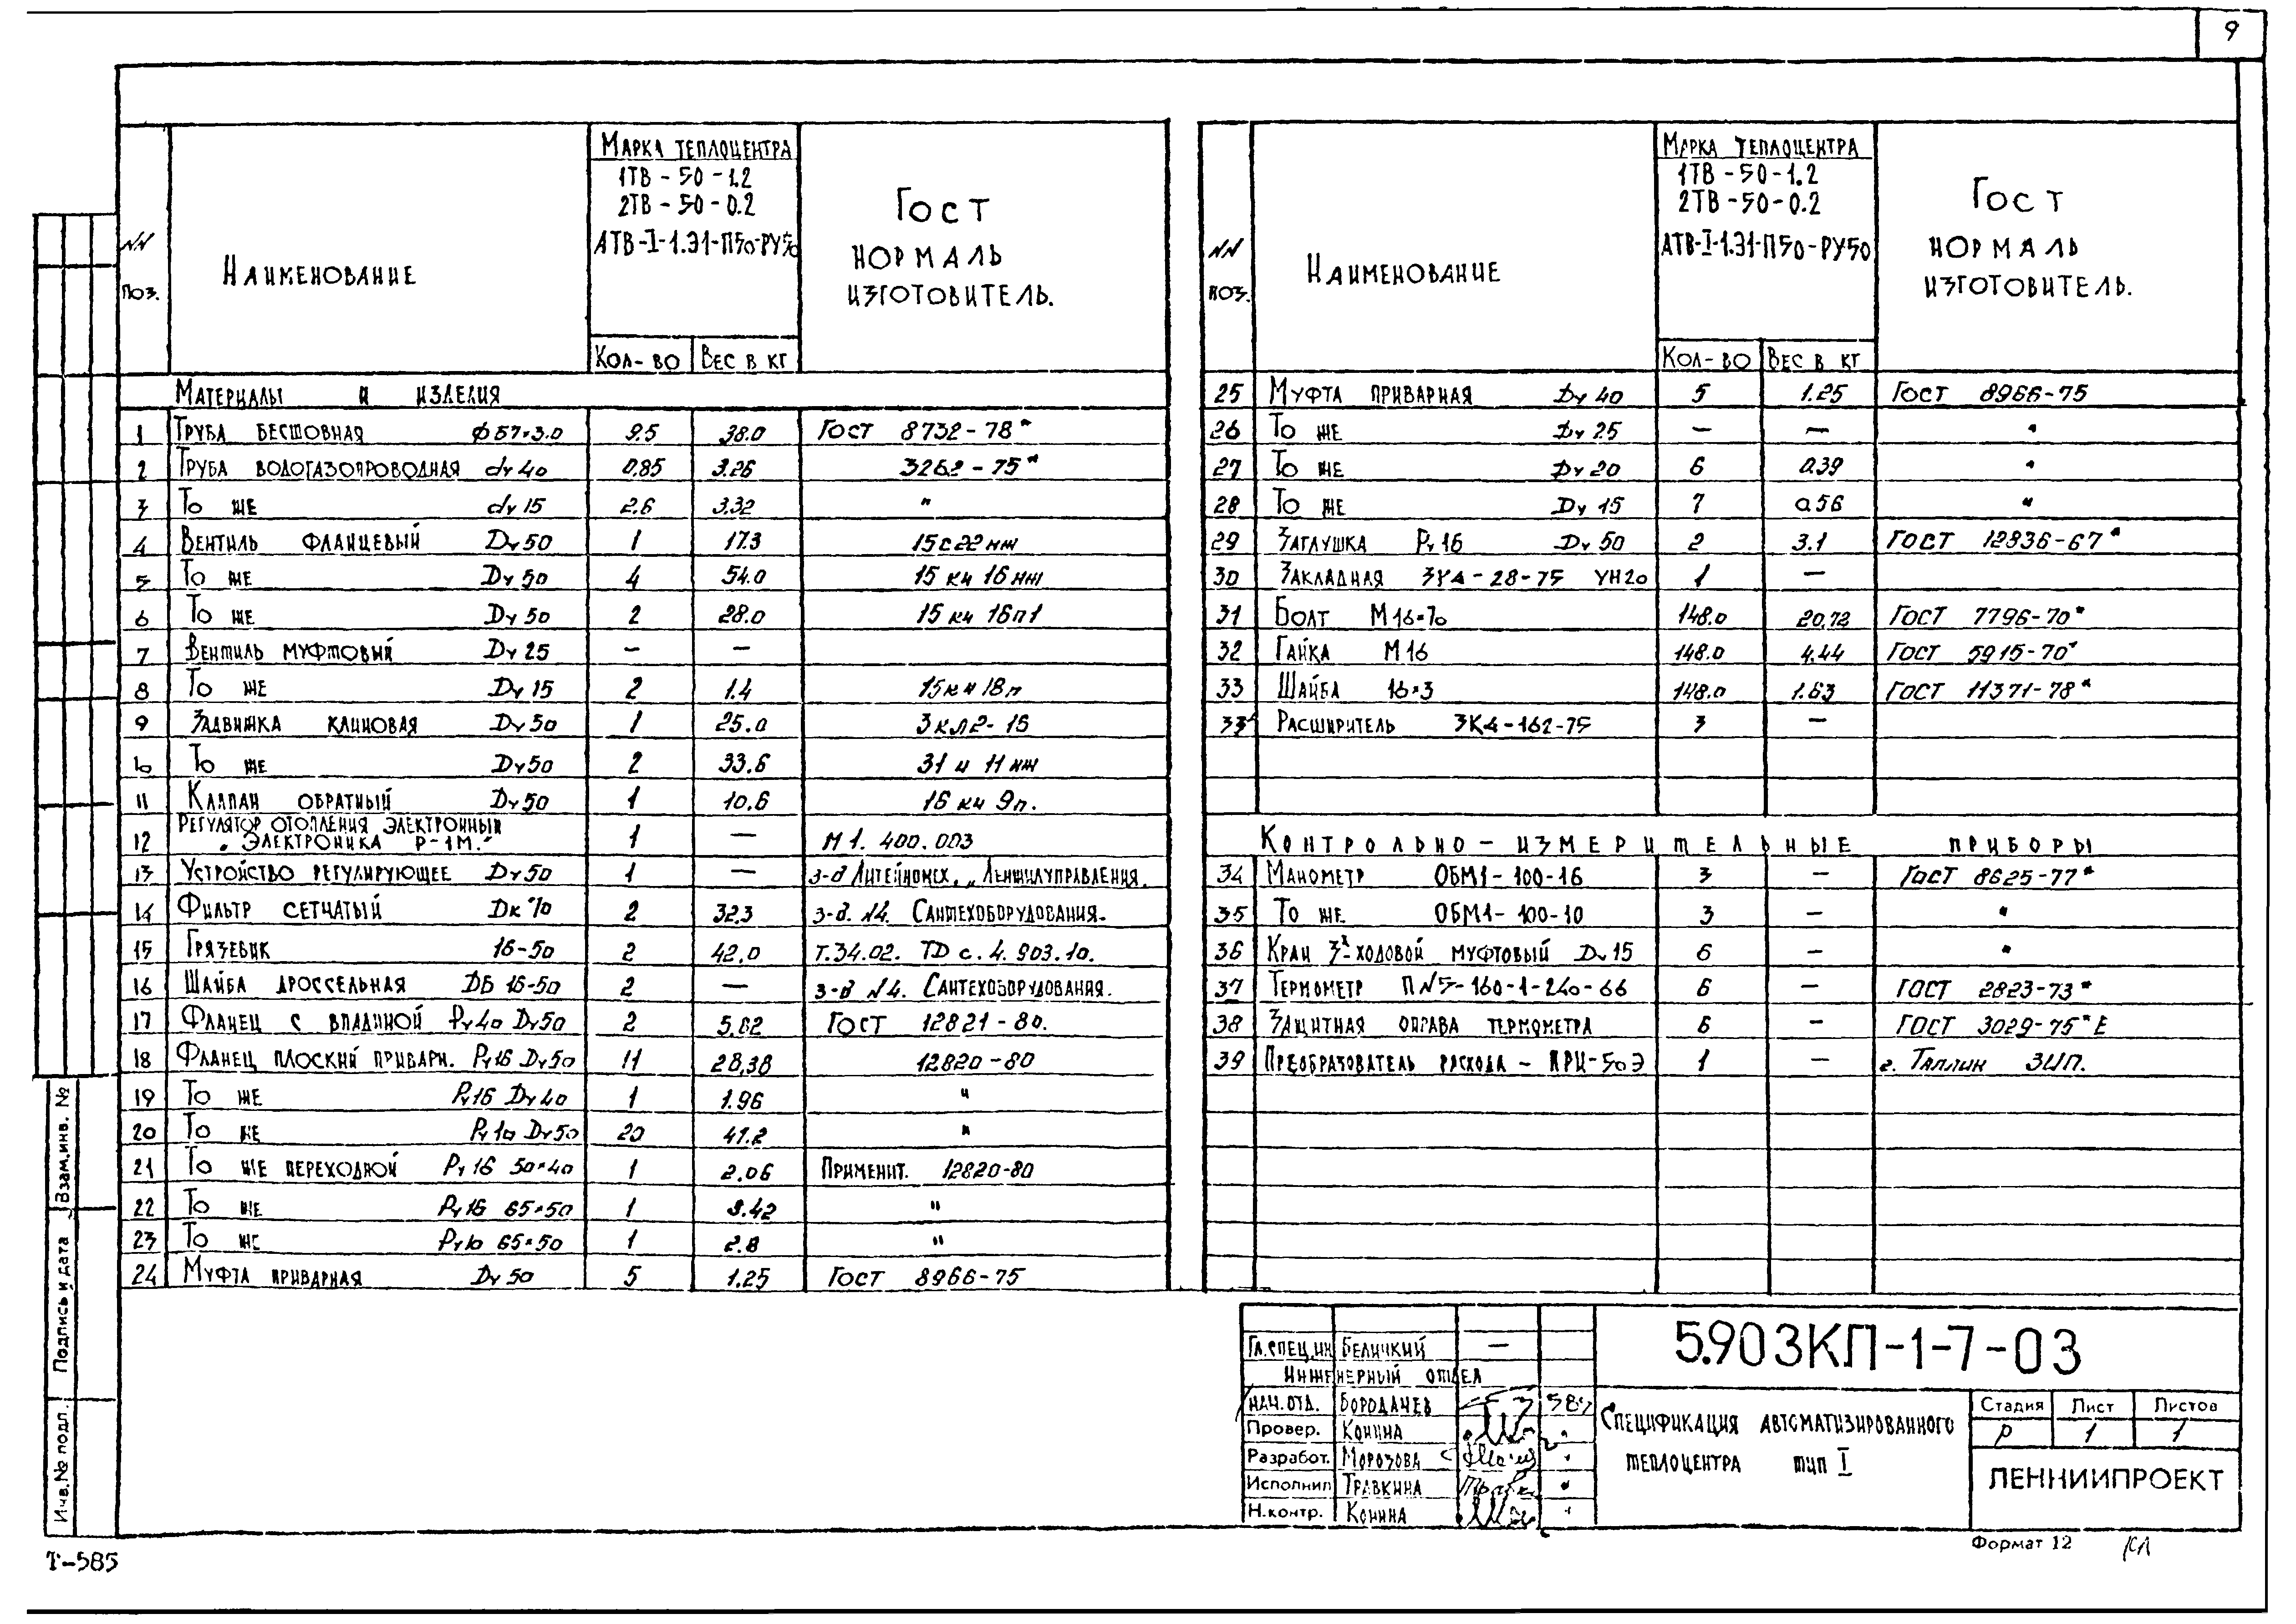 9
NN поз.
Наименование
Марка теплоцентра
1ТВ-50-1.2
2ТВ-50-0.2
АТВ-I-1.Э1-П50-РУ50
Кол-во Вес в кг
Гост
нормаль
изготовитель.
Материалы и изделия
1 Труба бесшовная ф57×3.0 9.5 38.0 Гост 8732-78*
2 Труба водогазопроводная dу 40 0.85 3.26 3262-75*
3 То же dу 15 2.6 3.32 "
4 Вентиль фланцевый Dу 50 1 17.3 15с22нж
5 То же Dу 50 4 54.0 15 кч 16 нж
6 То же Dу 50 2 28.0 15 кч 16п1
7 Вентиль муфтовый Dу 25 — —
8 То же Dу 15 2 1.4 15кч 18п
9 Задвижка клиновая Dу 50 1 25.0 3кл2-16
10 То же Dу50 2 33.6 31 ч 11 нж
11 Клапан обратный Dу50 1 10.6 16 кч 9п.
12 Регулятор отопления электронный
„Электроника Р-1М." 1 — М 1. 400. 003
13 Устройство регулирующее Dу50 1 — з-д Литейномех. „Ленжилуправления.
14 Фильтр сетчатый Dк 70 2 32.3 з-д. №4. Сантехоборудования.
15 Грязевик 16-50 2 42.0 Т.34.02. ТD с. 4. 903. 10.
16 Шайба дроссельная DБ 16-50 2 — з-д №4. Сантехоборудования.
17 Фланец с впадиной Ру40 Dу50 2 5,82 Гост 12821-80.
18 Фланец плоский приварн. Ру16 Dу50 11 28,38 12820-80
19 То же Ру16 Dу40 1 1.96 "
20 То же Ру10 Dу50 20 41.2 "
21 То же переходной Ру 16 50×40 1 2.06 Применит. 12820-80
22 То же Ру16 65×50 1 3.42 "
23 То же Ру10 65×50 1 2.8 "
24 Муфта приварная Dу 50 5 1.25 Гост 8966-75
NN поз.
Наименование
Марка теплоцентра
1ТВ-50-1.2
2ТВ-50-0.2
АТВ-I-1.Э1-П50-РУ50
Кол-во Вес в кг
Гост
нормаль
изготовитель.
25 Муфта приварная Dу 40 5 1.25 Гост 8966-75
26 То же Dу 25 — — "
27 То же Dу 20 6 0.39 "
28 То же Dу 15 7 0.56 "
29 Заглушка Ру 16 Dу 50 2 3.1 Гост 12836-67*
30 Закладная ЗК4-28-75 УН20 1 —
31 Болт М16×70 148.0 20,72 Гост 7796-70*
32 Гайка М16 148.0 4.44 Гост 5915-70*
33 Шайба 16×3 148.0 1.63 Гост 11371-78*
33ᴬ Расширитель ЗК4-162-75 3 —
Контрольно-измерительные приборы
34 Манометр ОБМ1-100-16 3 — Гост 8625-77*
35 То же ОБМ1-100-10 3 — "
36 Кран 3ˣ-ходовой муфтовый Dу15 6 — "
37 Термометр П№5-160-1-240-66 6 — Гост 2823-73*
38 Защитная оправа термометра 6 — Гост 3029-75*Е
39 Преобразователь расхода - ПРИ-50Э 1 — г. Таллин ЗИП.
5.903КП-1-7-03
Гл.спец.ин Беличкий —
Инженерный отдел
Нач.отд. Бородачев
Провер. Конина
Разработ. Морозова
Исполнил Травкина
Н.контр. Конина
Спецификация автоматизированного
теплоцентра тип I
Стадия Лист Листов
Р 1 1
ЛЕННИИПРОЕКТ
Формат 12
Взам.инв. №
Подпись и дата
Инв.№ подл.
Т-585